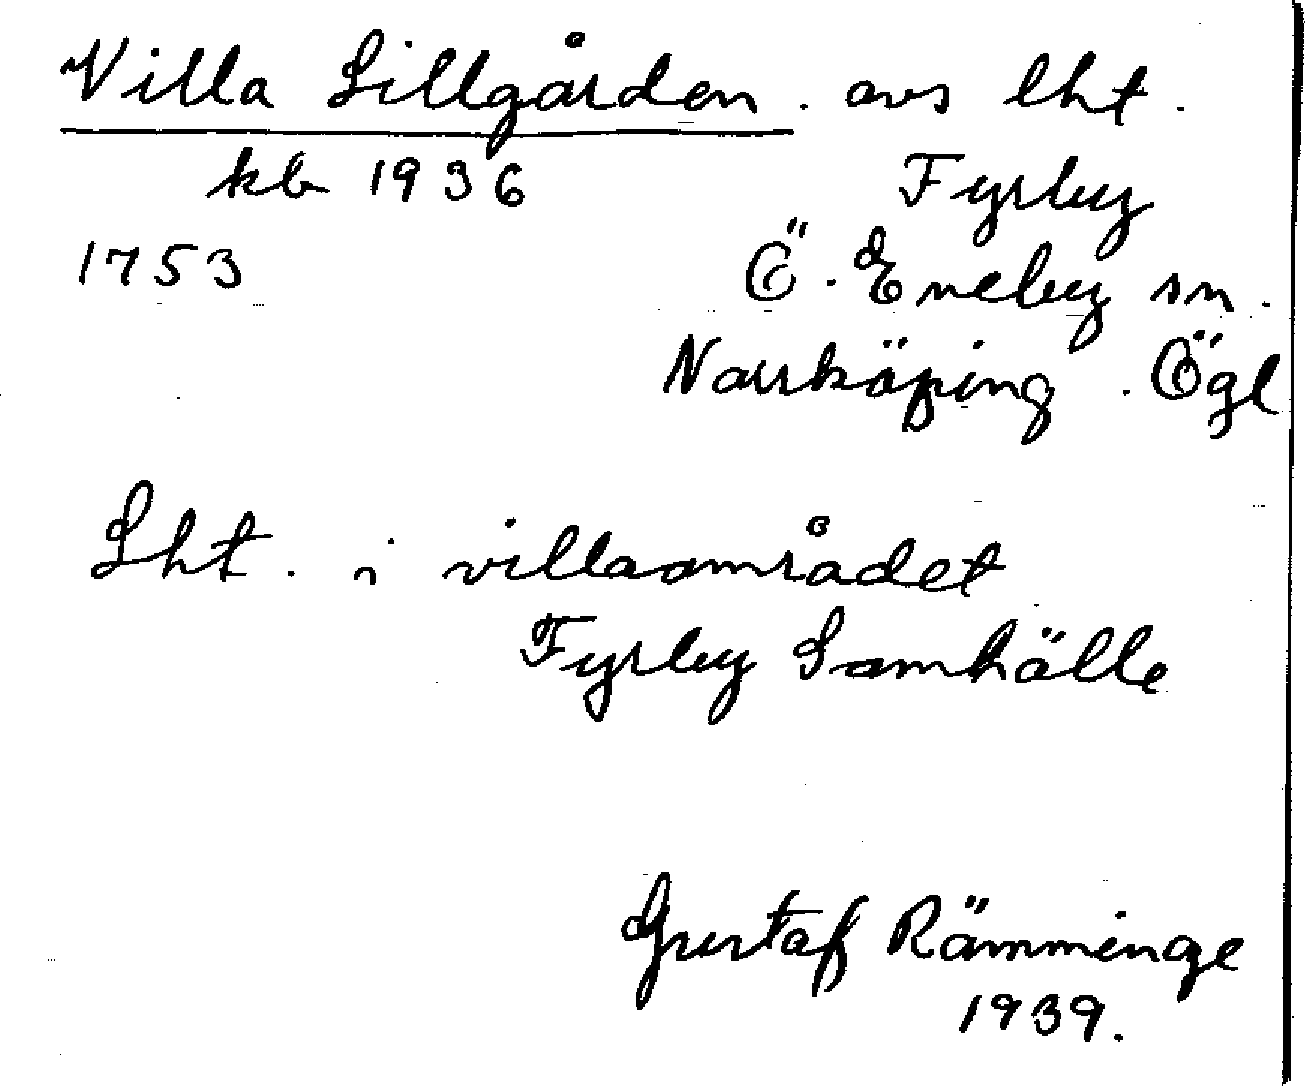 Villa Lillgården . avs lht .
kb 1936 Fyrby
1753 Ö. Eneby sn .
Norrköping . Ögl
Lht . i villaområdet
Fyrby Samhälle
Gustaf Rämminge
1939.